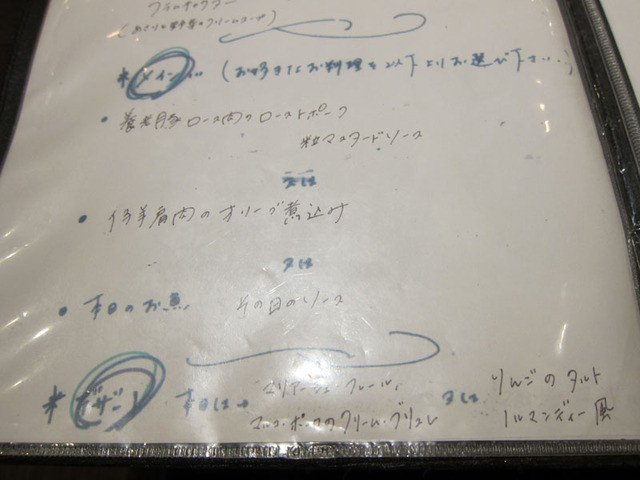 (あさりと野菜のクリームスープ)
* メイン (お好きなお料理を以下よりお選び下さい。)
• 養老豚ロース肉のローストポーク
粒マスタードソース
又は
• 仔羊肩肉のオリーブ煮込み
又は
• 本日のお魚 その日のソース
* デザート 本日は→ マリアージュ・フレール, 又は りんごのタルト
マルコ・ポーロのクリーム・ブリュレ ノルマンディー風